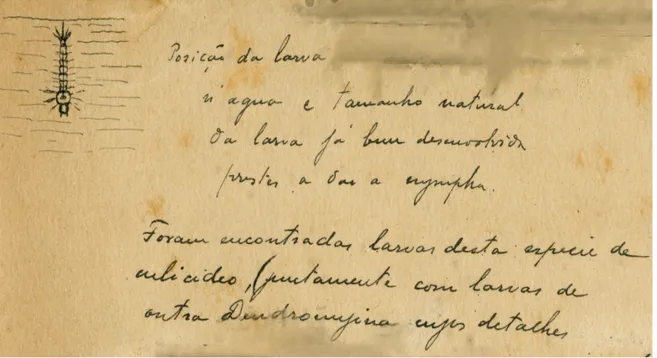 Posição da larva
n'agua e tamanho natural
da larva já bem desenvolvida
prestes a dar a nympha.
Foram encontradas larvas desta especie de
culicideo, (juntamente com larvas de
outra Dendromyina cujos detalhes